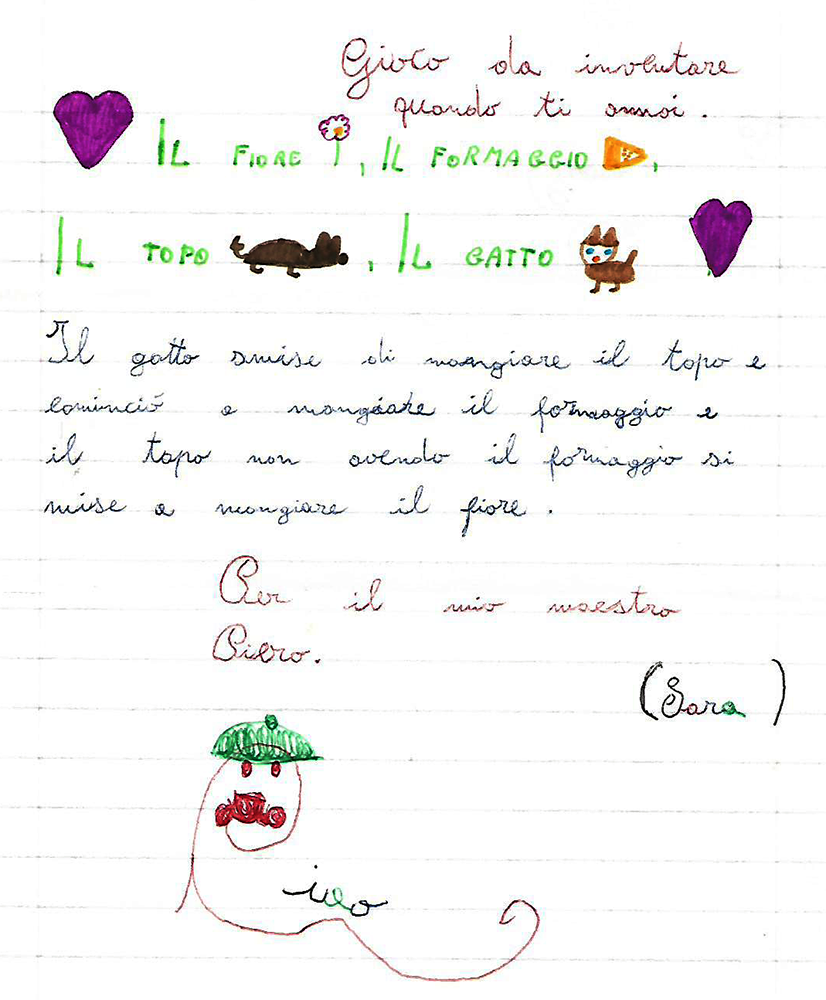 Gioco da inventare
quando ti annoi.
IL FIORE, IL FORMAGGIO,
IL TOPO, IL GATTO
Il gatto smise di mangiare il topo e
cominciò a mangiare il formaggio e
il topo non avendo il formaggio si
mise a mangiare il fiore.
Per il mio maestro
Piero.
(Sara)